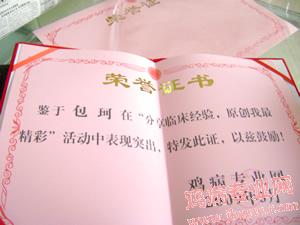 荣誉证
荣誉证书
鉴于 包 珂 在“分享临床经验,原创我最
精彩”活动中表现突出,特发此证,以兹鼓励!
鸡病专业网